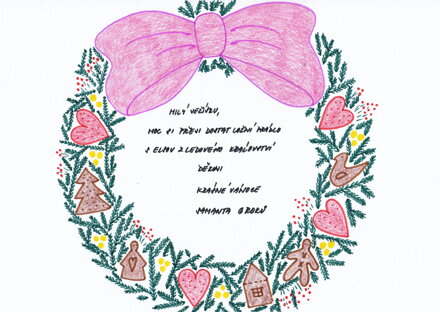 MILÝ JEŽÍŠKU,
MOC SI PŘEJI DOSTAT LOŽNÍ PRÁDLO
S ELSOU Z LEDOVÉHO KRÁLOVSTVÍ
DĚKUJI
KRÁSNÉ VÁNOCE
SAMANTA 8 ROKŮ